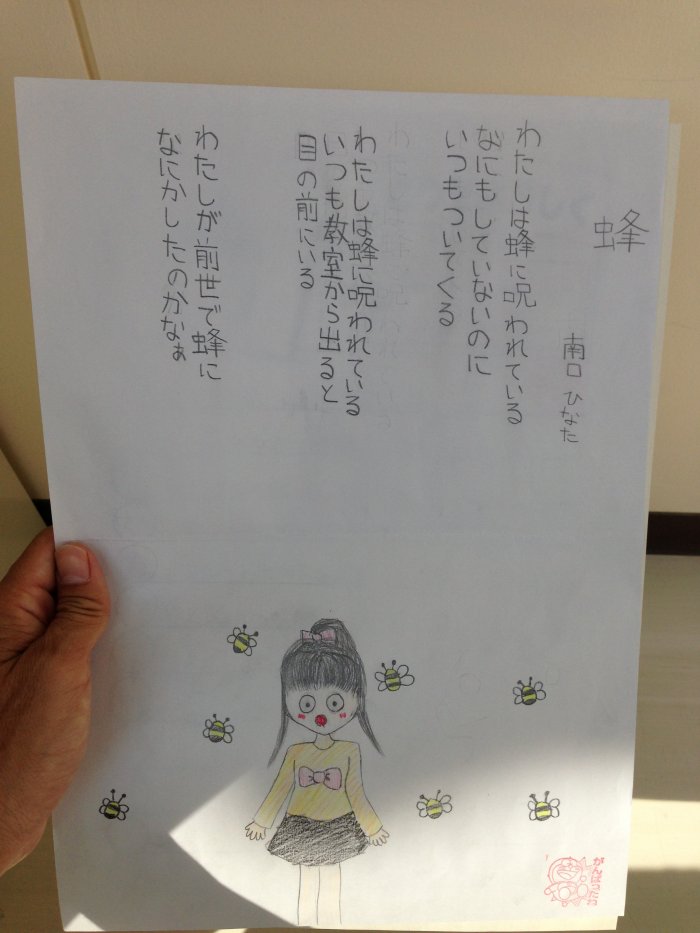 蜂
南口 ひなた
わたしは蜂に呪われている
なにもしていないのに
いつもついてくる
わたしは蜂に呪われている
いつも教室から出ると
目の前にいる
わたしが前世で蜂に
なにかしたのかなぁ